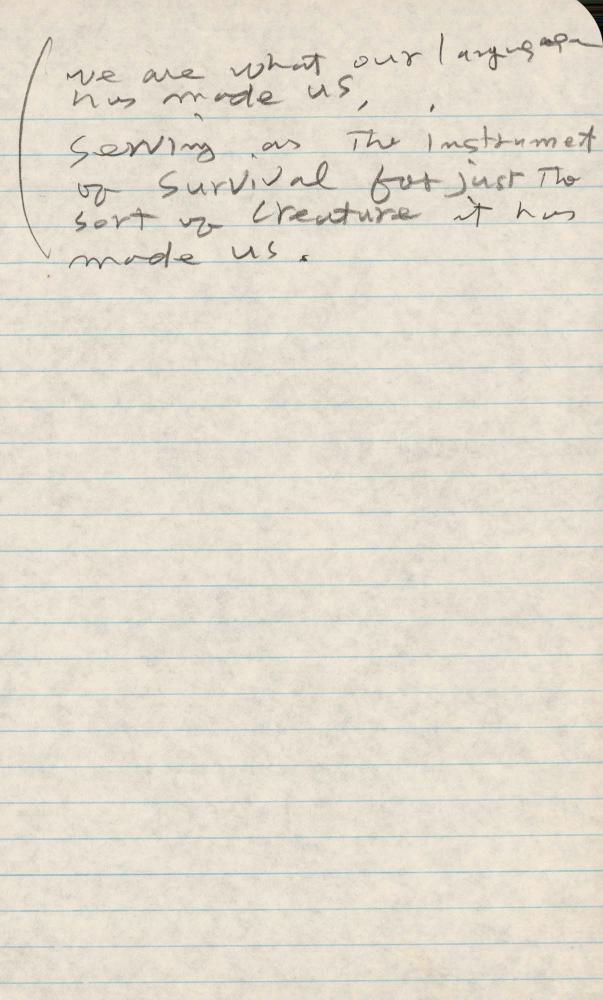 we are what our language
has made us,
serving as the instrumet
of survival for just the
sort of creature it has
made us.